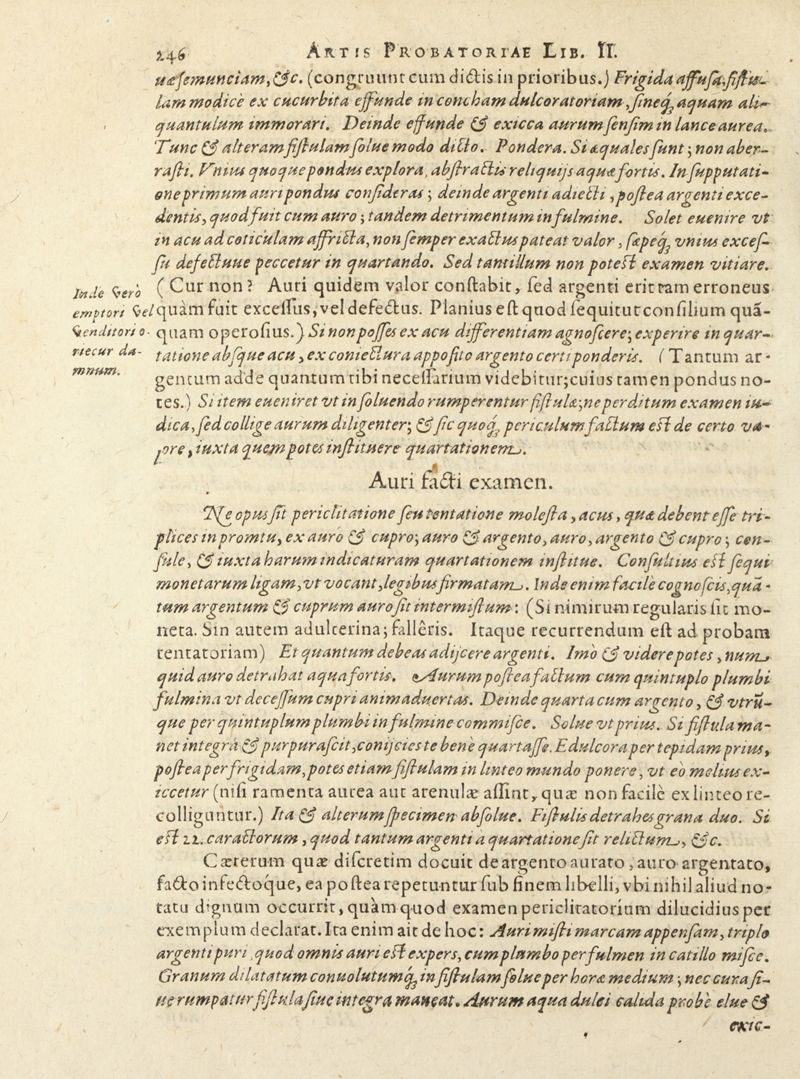 246 ARTIS PROBATORIAE LIB. II.
uæsemunciam, &c. (congruunt cum dictis in prioribus.) Frigida affusa, fistu-
lam modicè ex cucurbita effunde in concham dulcoratoriam, sineq́; aquam ali-
quantulum immorari. Deinde effunde & exicca aurum sensim in lance aurea.
Tunc & alteram fistulam solue modo dicto. Pondera. Si æquales sunt; non aber-
rasti. Vnius quoque pondus explora, abstractis reliquijs aquæ fortis. In supputati-
one primum auri pondus consideras; deinde argenti adiecti, postea argenti exce-
dentis, quod fuit cum auro; tandem detrimentum in fulmine. Solet euenire vt
in acu ad coticulam affricta, non semper exactus pateat valor, sæpeq́; vnius exces-
su defectuue peccetur in quartando. Sed tantillum non potest examen vitiare.
Inde verò
emptori vel
venditori o-
riecur da-
mnum.
(Cur non? Auri quidem valor constabit, sed argenti erit tam erroneus
quàm fuit excessus, vel defectus. Planius est quod sequitur consilium quā-
quam operosius.) Si non posses ex acu differentiam agnoscere; experire in quar-
tatione absque acu, ex coniectura apposito argento certi ponderis. (Tantum ar-
gentum adde quantum tibi necessarium videbitur; cuius tamen pondus no-
tes.) Si item eueniret vt in soluendo rumperentur fistulæ; ne perditum examen iu-
dica, sed collige aurum diligenter; & sic quoq́; periculum factum est de certo va-
lore, iuxta quem potes instituere quartationem.
Auri facti examen.
Ne opus sit periclitatione seu tentatione molesta, acus, quæ debent esse tri-
plices in promtu, ex auro & cupro; auro & argento, auro, argento & cupro; con-
sule, & iuxta harum indicaturam quartationem institue. Consultius est sequi
monetarum ligam, vt vocant, legibus firmatam. Inde enim facile cognoscis, quā-
tum argentum & cuprum auro sit intermistum: (Si nimirum regularis sit mo-
neta. Sin autem adulterina; fallêris. Itaque recurrendum est ad probam
tentatoriam) Et quantum debeas adijcere argenti. Imò & videre potes, num
quid auro detrahat aqua fortis. Aurum postea factum cum quintuplo plumbi
fulmina vt decessum cupri animaduertas. Deinde quarta cum argento, & vtrū-
que per quintuplum plumbi in fulmine commisce. Solue vt prius. Si fistula ma-
net integra & purpurascit, conijcies te bene quartasse. Edulcora per tepidam prius,
postea per frigidam, potes etiam fistulam in linteo mundo ponere, vt eò melius ex-
iccetur (nisi ramenta aurea aut arenulæ assint, quæ non facilè ex linteo re-
colliguntur.) Ita & alterum specimen absolue. Fistulis detrahes grana duo. Si
est 22. caractorum, quod tantum argenti a quartatione sit relictum, &c.
Cæterum quæ discretim docuit de argento aurato, auro argentato,
facto infectoque, ea postea repetuntur sub finem libelli, vbi nihil aliud no-
tatu dignum occurrit, quàm quod examen periclitatorium dilucidius per
exemplum declarat. Ita enim ait de hoc: Auri misti marcam appensam, triplo
argenti puri quod omnis auri est expers, cum plumbo per fulmen in catillo misce.
Granum dilatatum conuolutumq́; in fistulam solue per horæ medium; nec cura si-
ue rumpatur fistula siue integra maneat. Aurum aqua dulci calida probè elue &
exic-